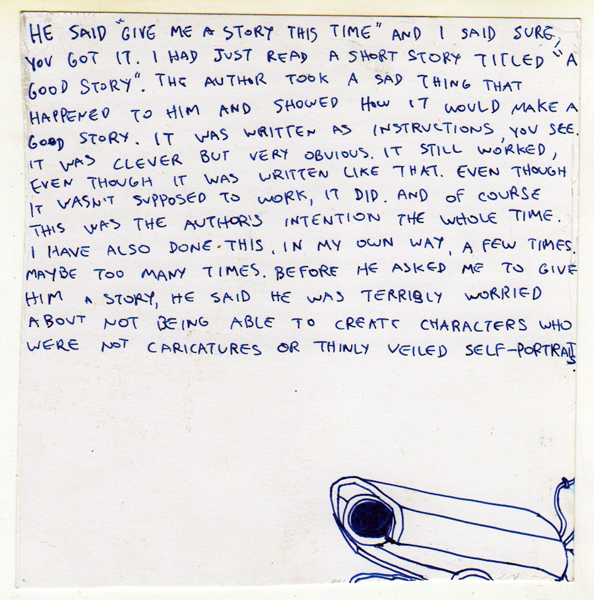 HE SAID "GIVE ME A STORY THIS TIME" AND I SAID SURE,
YOU GOT IT. I HAD JUST READ A SHORT STORY TITLED "A
GOOD STORY". THE AUTHOR TOOK A SAD THING THAT
HAPPENED TO HIM AND SHOWED HOW IT WOULD MAKE A
GOOD STORY. IT WAS WRITTEN AS INSTRUCTIONS, YOU SEE.
IT WAS CLEVER BUT VERY OBVIOUS. IT STILL WORKED,
EVEN THOUGH IT WAS WRITTEN LIKE THAT. EVEN THOUGH
IT WASN'T SUPPOSED TO WORK, IT DID. AND OF COURSE
THIS WAS THE AUTHOR'S INTENTION THE WHOLE TIME.
I HAVE ALSO DONE THIS, IN MY OWN WAY, A FEW TIMES.
MAYBE TOO MANY TIMES. BEFORE HE ASKED ME TO GIVE
HIM A STORY, HE SAID HE WAS TERRIBLY WORRIED
ABOUT NOT BEING ABLE TO CREATE CHARACTERS WHO
WERE NOT CARICATURES OR THINLY VEILED SELF-PORTRAITS.